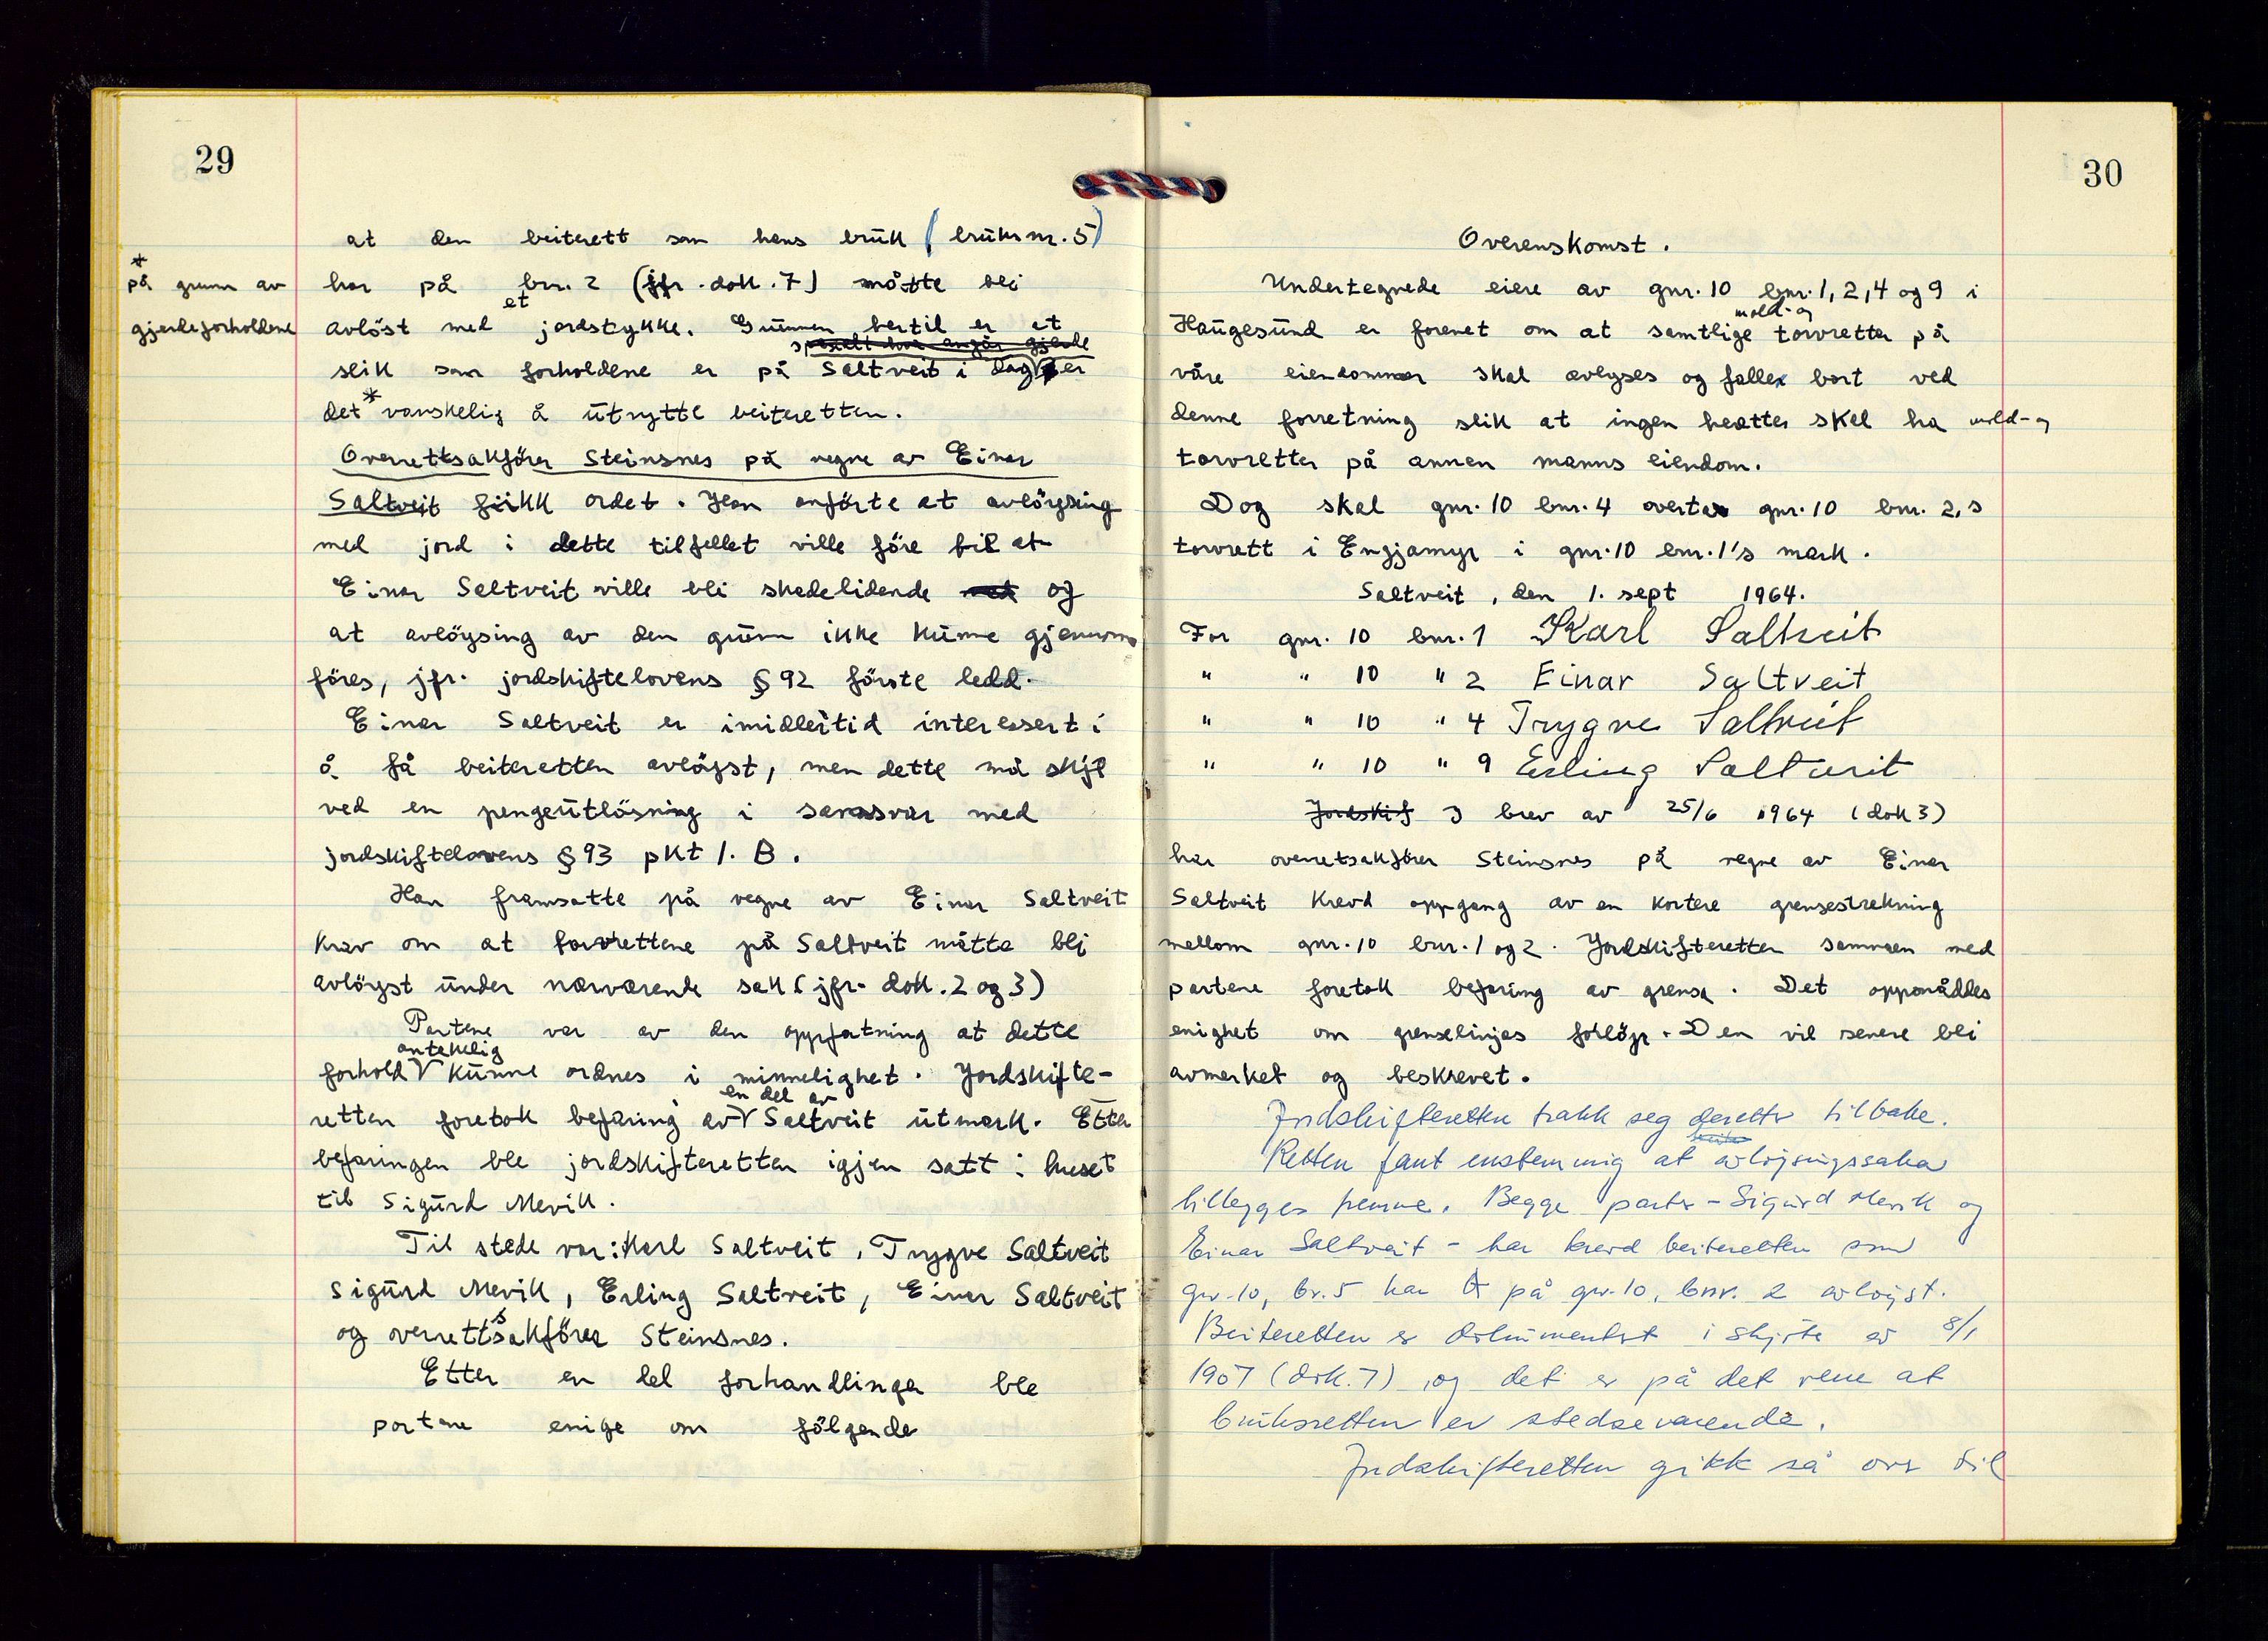 29
at den beiterett som hans bruk (bruksnr. 5)
* på grunn av
har på bnr. 2 (jfr. dok. 7) måtte bli
gjerdeforholdene
avlöst med et jordstykke. Grunnen hertil er at
spesielt hva angår gjerde
slik som forholdene er på Saltveit i dag er
det * vanskelig å utnytte beiteretten.
Overrettsakförer Steinsnes på vegne av Einar
Saltveit fikk ordet. Han anförte at avlöysing
med jord i dette tilfellet ville före til at
Einar Saltveit ville bli skadelidende og
at avlöysing av den grunn ikke kunne gjennom
föres, jfr. jordskiftelovens § 92 förste ledd.
Einar Saltveit er imidlertid interessert i
å få beiteretten avlöyst, men dette må skje
ved en pengeutlösning i samsvar med
jordskiftelovens § 93 pkt 1. B.
Han framsatte på vegne av Einar Saltveit
krav om at torvrettene på Saltveit måtte bli
avlöyst under nærværende sak (jfr. dok. 2 og 3)
Partene var av den oppfatning at dette
antakelig
forhold V kunne ordnes i minnelighet. Jordskifte-
en del av
retten foretok befaring av V Saltveit utmark. Etter
befaringen ble jordskifteretten igjen satt i huset
til Sigurd Mevik.
Til stede var: Karl Saltveit, Trygve Saltveit
Sigurd Mevik, Erling Saltveit, Einar Saltveit
og overrettsakförer Steinsnes.
Etter en del forhandlinger ble
partene enige om fölgende
30
Overenskomst.
Undertegnede eiere av gnr. 10 bnr. 1, 2, 4 og 9 i
mold- og
Haugesund er forenet om at samtlige torvretter på
våre eiendommer skal avlyses og falle bort ved
denne forretning slik at ingen heretter skal ha mold- og
torvretter på annen manns eiendom.
Dog skal gnr. 10 bnr. 4 overta gnr. 10 bnr. 2,s
torvrett i Engjamyr i gnr. 10 bnr. 1's mark.
Saltveit, den 1. sept 1964.
For gnr. 10 bnr. 1 Karl Saltveit
" " 10 " 2 Einar Saltveit
" " 10 " 4 Trygve Saltveit
" " 10 " 9 Erling Saltveit
Jordskif I brev av 25/6 1964 (dok 3)
har overretsakförer Steinsnes på vegne av Einar
Saltveit krevd oppgang av en kortere grensestrekning
mellom gnr. 10 bnr. 1 og 2. Jordskifteretten sammen med
partene foretok befaring av grensa. Det oppnåddes
enighet om grenselinjes forlöp. Den vil senere bli
avmerket og beskrevet.
Jordskifteretten trakk seg deretter tilbake.
Retten fant enstemmig at avlöysingssaka
tillegges fremme. Begge parter - Sigurd Mevik og
Einar Saltveit - har krevd beiteretten som
gnr. 10, br. 5 har på gnr. 10, bnr. 2 avlöyst.
Beiteretten er dokumentert i skjöte av 8/1
1907 (dok. 7), og det er på det rene at
bruksretten er stedsevarende.
Jordskifteretten gikk så over til